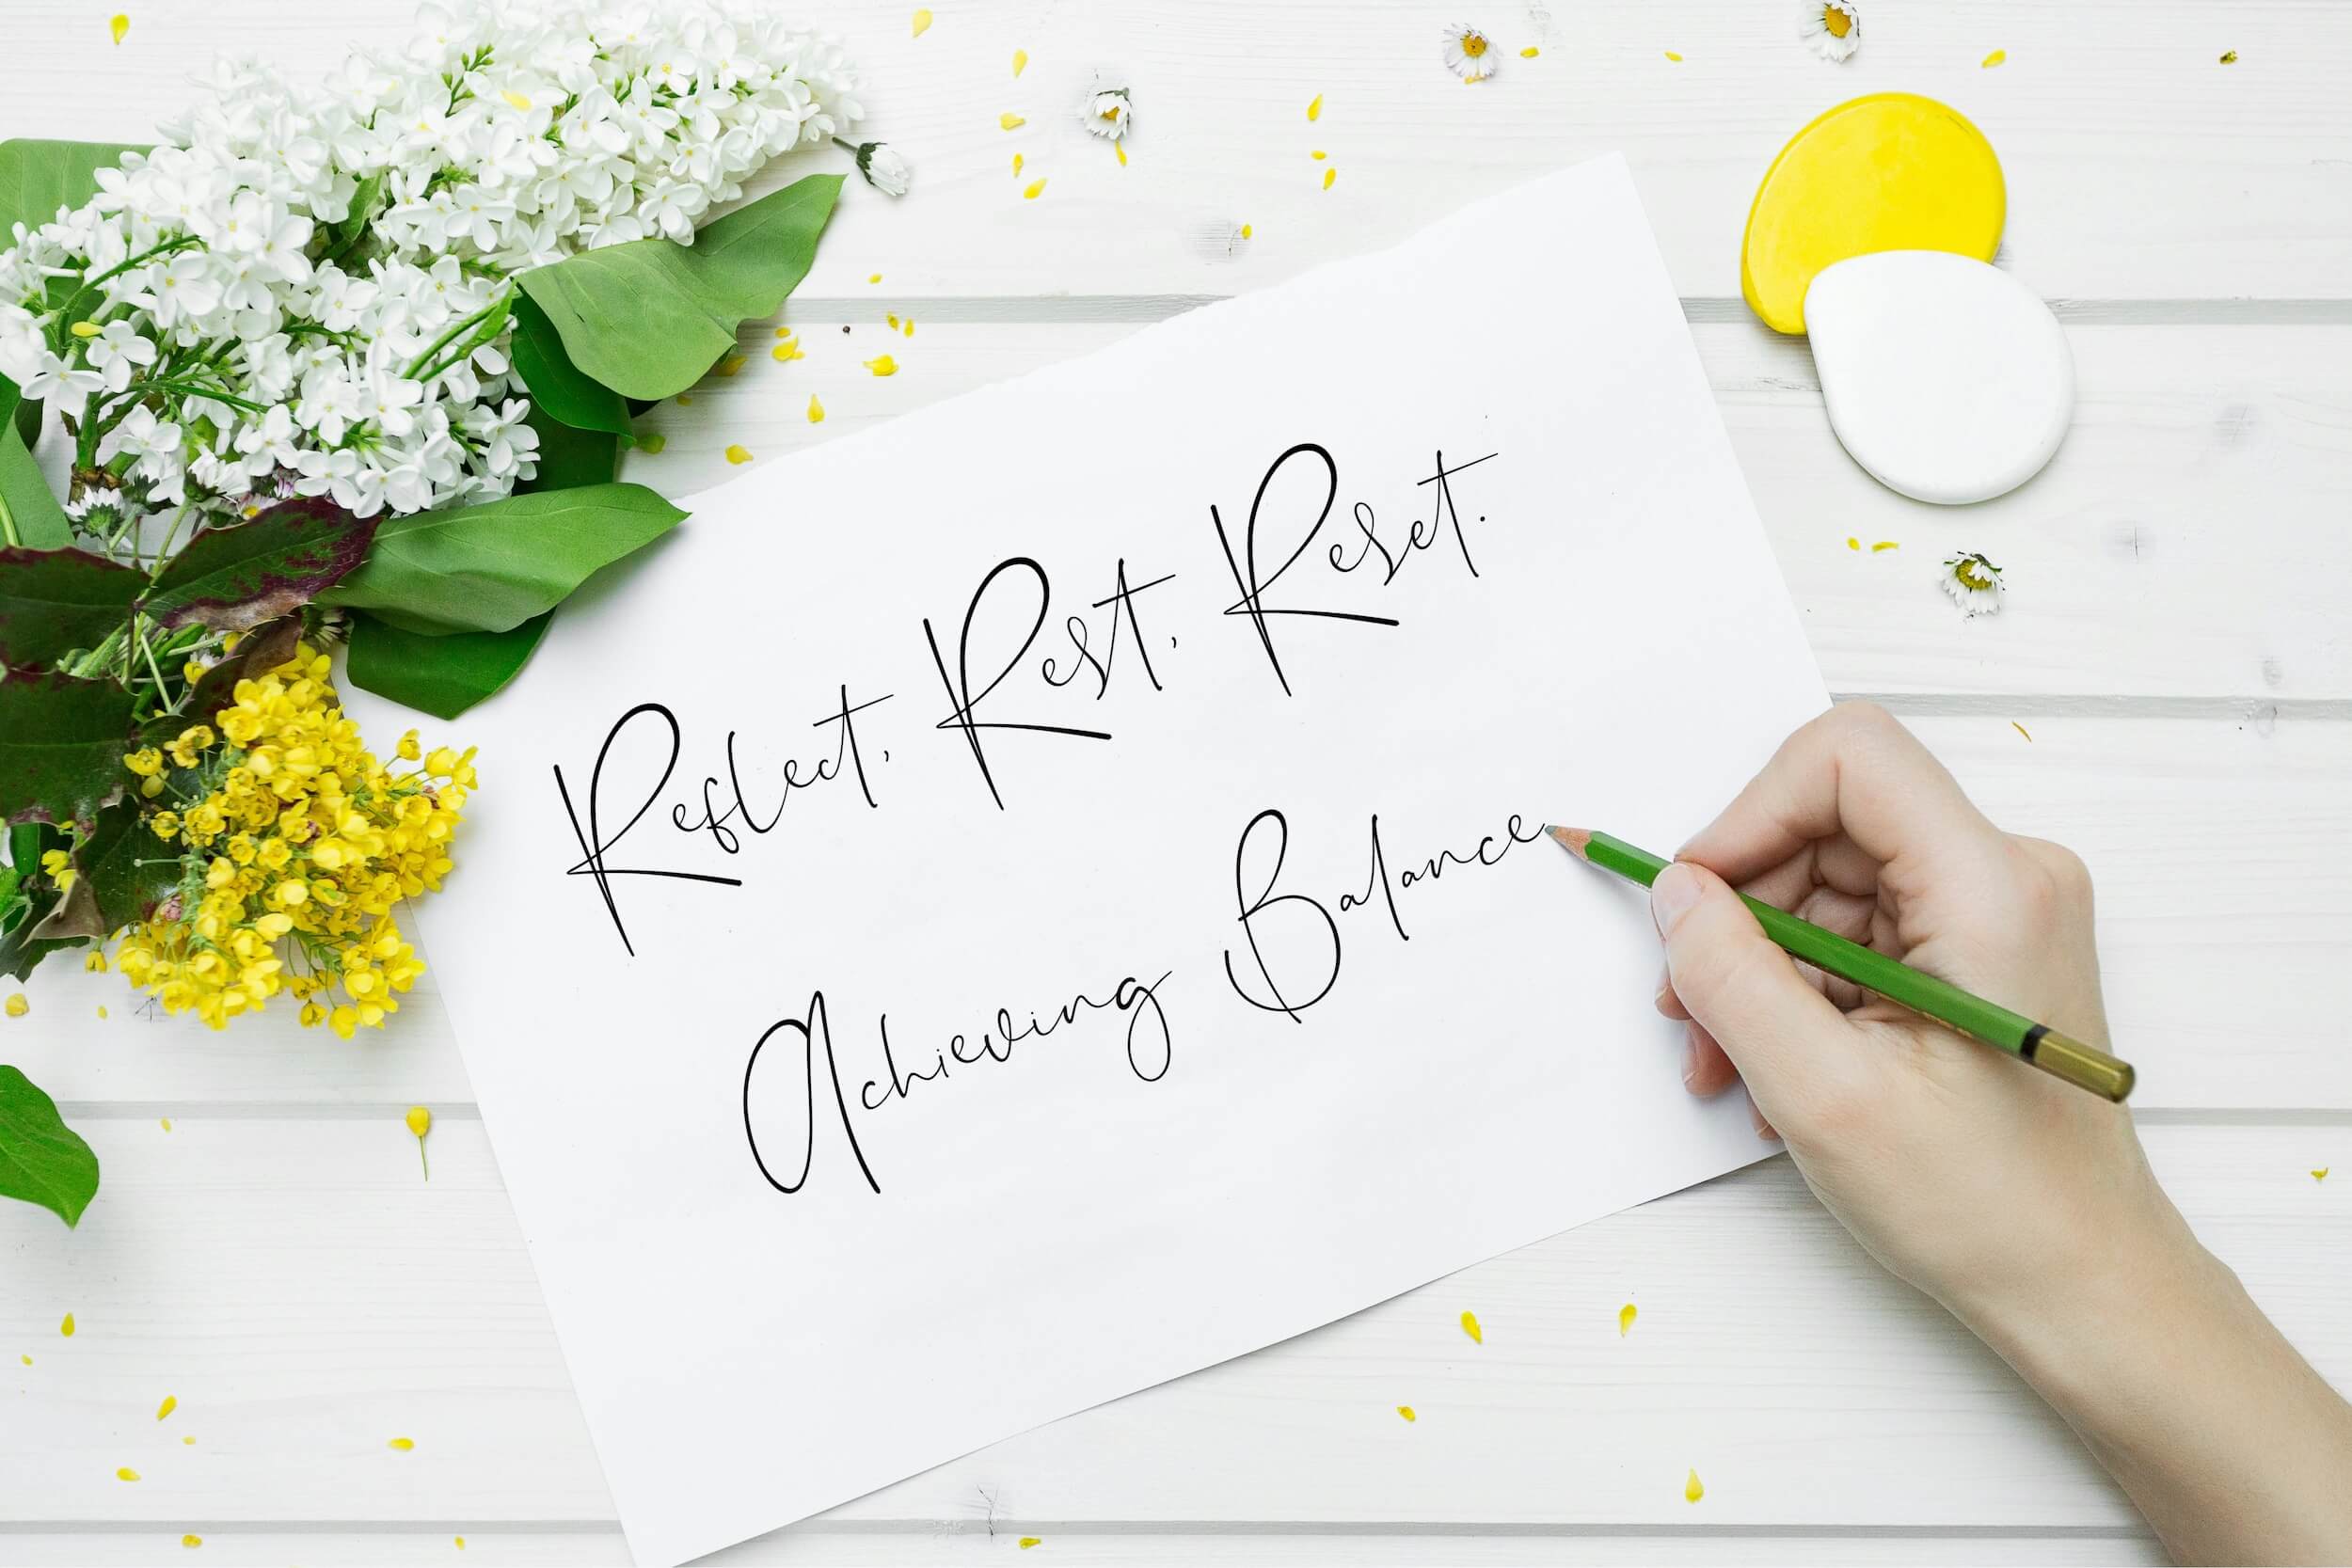 Reflect, Rest, Reset.
Achieving Balance